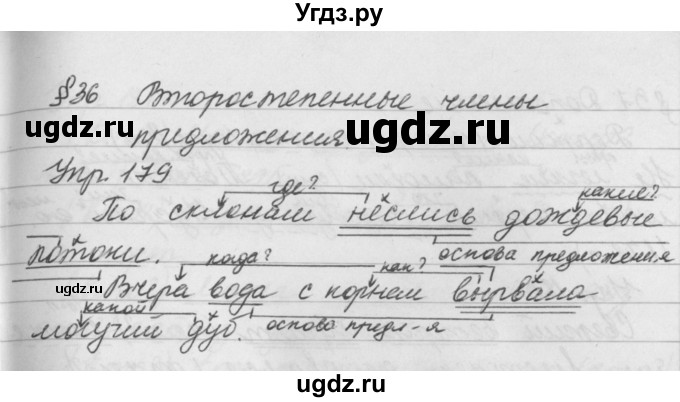 Угдз.ру
§36 Второстепенные члены
предложения.
ugdz.ru
Упр. 179
где? какие?
По склонам неслись дождевые
потоки. основа предложения
когда? как?
ugdz.ru
Вчера вода с корнем вырвала
какой
могучий дуб. основа предл-я
ugdz.ru